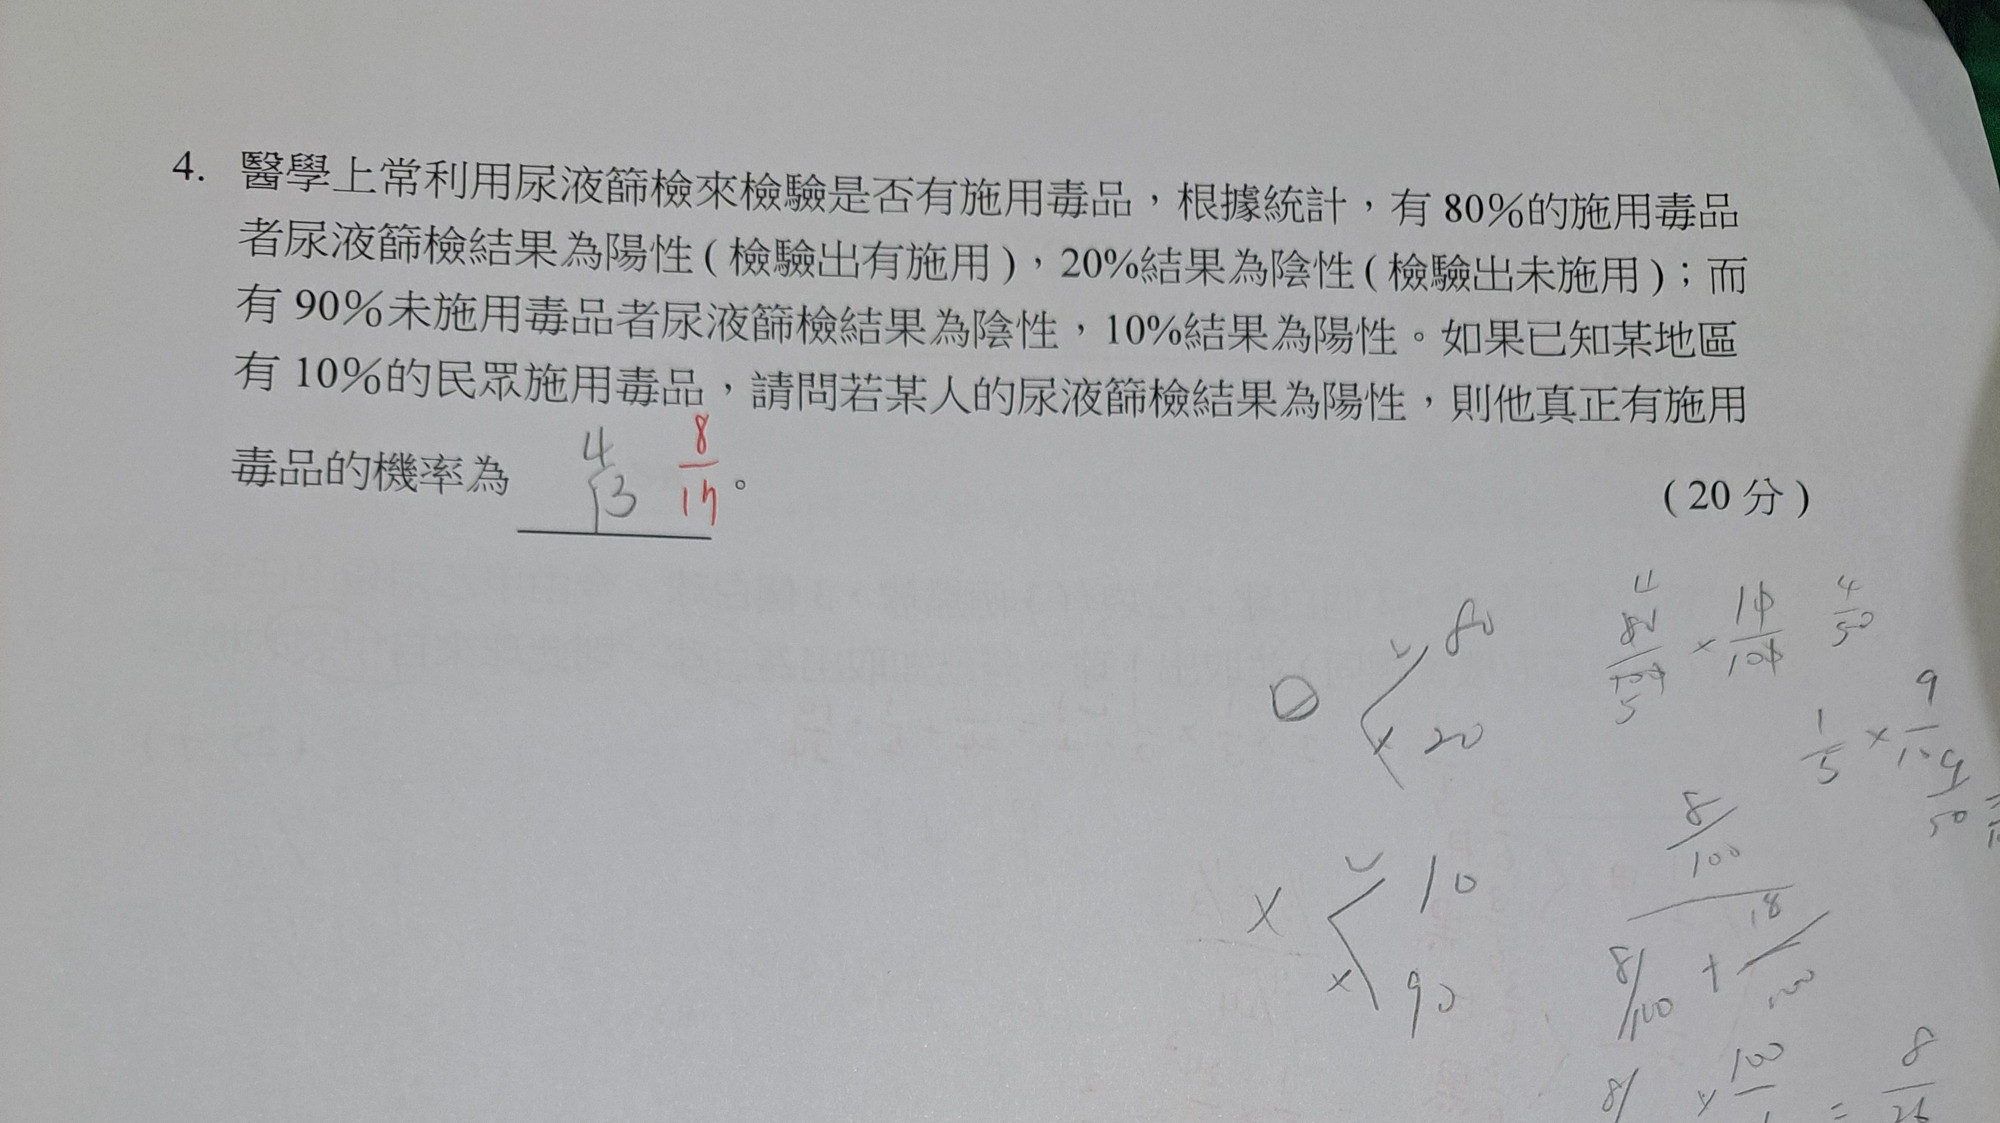 4. 醫學上常利用尿液篩檢來檢驗是否有施用毒品，根據統計，有 80%的施用毒品
者尿液篩檢結果為陽性 ( 檢驗出有施用 )，20%結果為陰性 ( 檢驗出未施用 )；而
有 90%未施用毒品者尿液篩檢結果為陰性，10%結果為陽性。如果已知某地區
有 10%的民眾施用毒品，請問若某人的尿液篩檢結果為陽性，則他真正有施用
毒品的機率為 4/13 8/17 。
( 20 分 )
80
20
4/50
1/5 × 9/10
9/50
8/100
8/100 + 18/100
× 10
× 90
= 8/26